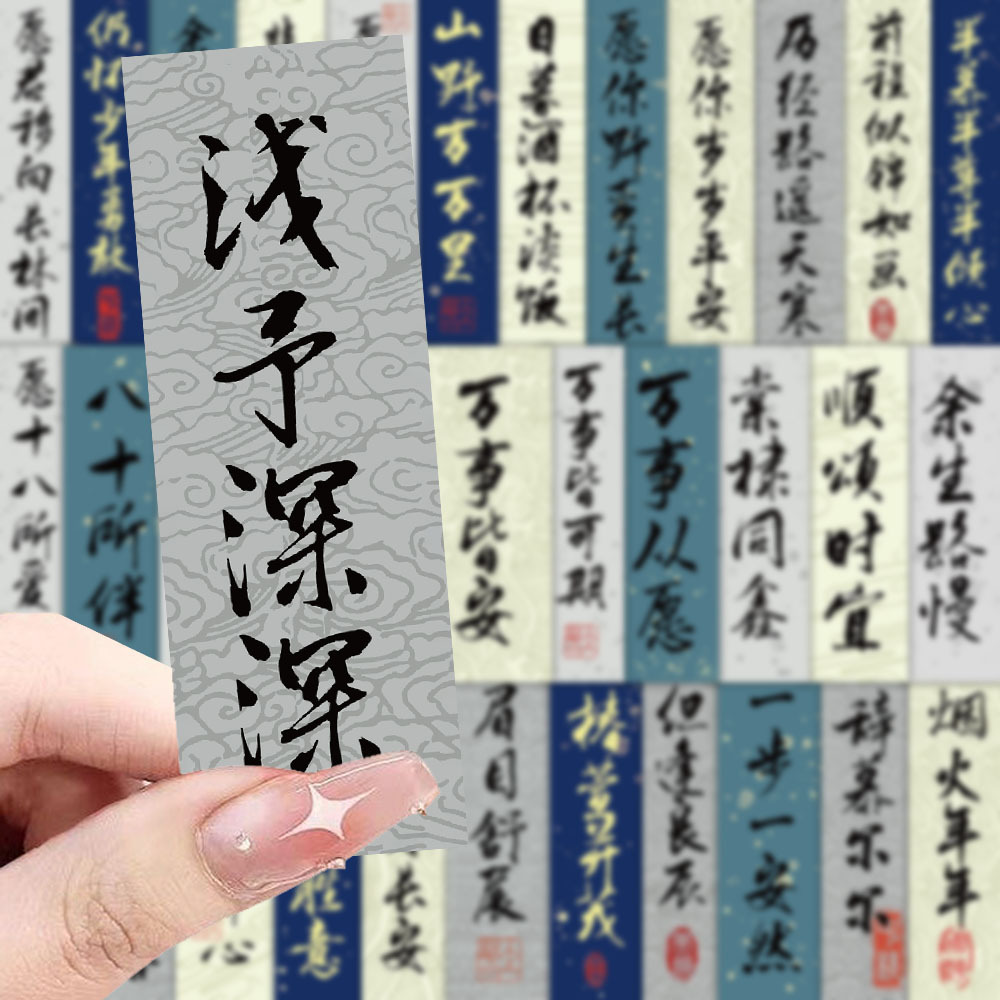 浅予深深
愿君移向长林间
山野万万里
日暮酒杯淡饭
愿你野蛮生长
愿你岁岁平安
历经路遥天寒
前程似锦如画
愿十八所爱
八十所伴
万事皆安
万事皆可期
万事从愿
棠棣同鑫
顺颂时宜
余生路慢
心
胜意
长安
眉目舒展
椿萱并茂
但逢良辰
一步一安然
辞暮尔尔
烟火年年